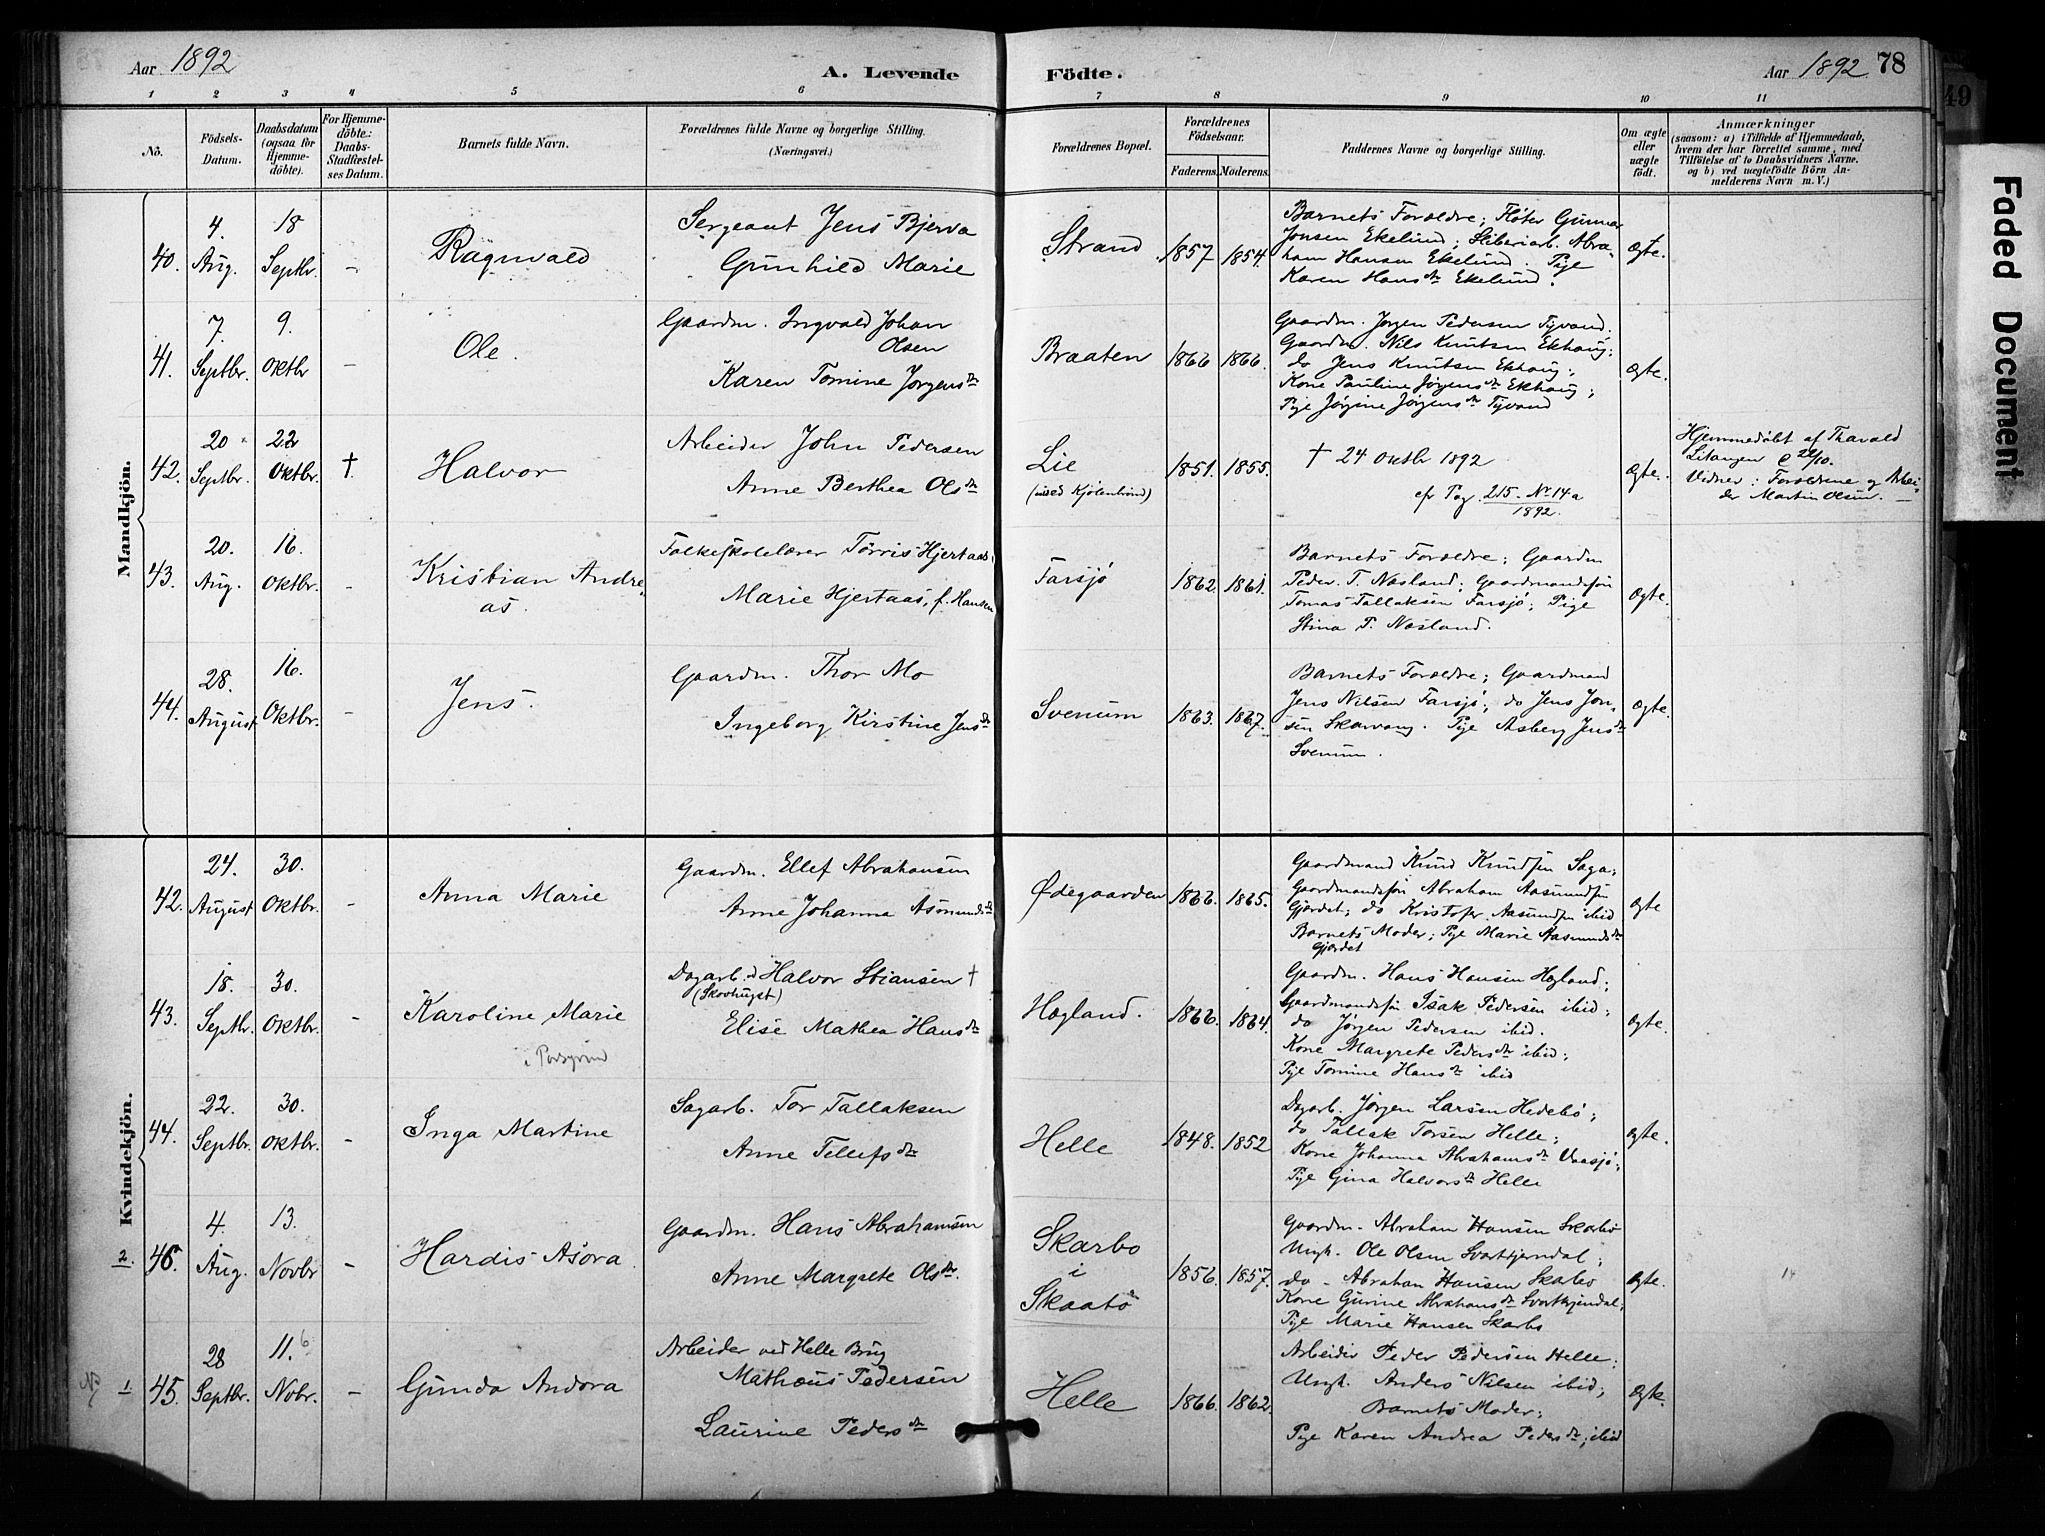 Aar 1892
A. Levende
Födte.
Aar 1892
78
1 2 3 4 5 6 7 8 9 10 11
No.
Födsels-
Datum.
Daabsdatum
(ogsaa for
Hjemme-
döbte).
For Hjemme-
döbte:
Daabs-
Stadfæstel-
ses Datum.
Barnets fulde Navn.
Forældrenes fulde Navne og borgerlige Stilling.
(Næringsvei.)
Forældrenes Bopæl.
Forældrenes
Födselsaar.
Faderens. Moderens.
Faddernes Navne og borgerlige Stilling.
Om ægte
eller
uægte
födt.
Anmærkninger
(saasom: a) i Tilfælde af Hjemmedaab,
hvem der har forrettet samme, med
Tilföielse af to Daabsvidners Navne,
og b) ved uægtefödte Börn An-
melderens Navn m. V.)
Mandkjön.
40.
4.
Aug.
18
Septbr.
-
Ragnvald
Sergeant Jens Bjerva
Gunhild Marie
Strand
1857 1854.
Barnets Forældre; Fløter Gunnar
Jonsen Ekelund; Sliberiarb. Abra-
ham Hansen Ekelund. Pige
Karen Hansdtr Ekelund.
Ægte.
41.
7.
Septbr.
9.
Oktbr
-
Ole.
Gaardm. Ingvald Johan
Olsen
Karen Tomine Jørgensdtr
Braaten
1866 1866.
Gaardm. Jørgen Pedersen Tyvand.
Gaardm. Nils Knutsen Ekhaug;
do Jens Knutsen Ekhaug;
Kone Pauline Jørgensdtr Ekhaug;
Pige Jørgine Jørgensdtr Tyvand
Ægte.
42.
20
Septbr.
22
Oktbr.
†.
Halvor
Arbeider John Pedersen
Anne Berthea Olsdtr
Lie
(under Kjølebrønd)
1851. 1855.
† 24 Oktbr 1892
cfr Pag. 215 - No 14a
1892.
Ægte.
Hjemmedøbt af Tharald
Litangen d 22/10.
Vidner: Forældrene og Arbei-
der Martin Olsen.
43.
20.
Aug.
16.
Oktbr.
-
Kristian Andre-
as.
Folkeskolelærer Tørris Hjertaas,
Marie Hjertaas, f. Hansen
Farsjø
1862. 1861.
Barnets Forældre; Gaardm
Peder T. Næsland; Gaardmandssøn
Tomas Tallaksen Farsjø; Pige
Stina P. Næsland.
Ægte.
44.
28.
August
16.
Oktbr.
-
Jens.
Gaardm. Thor Mo
Ingeborg Kirstine Jensdtr
Svenum
1863. 1867.
Barnets Forældre; Gaardmand
Jens Nilsen Farsjø; do Jens Jon-
sen Skarvang. Pige Asberg Jensdtr
Svenum.
Ægte.
Kvindekjön.
42.
24.
August
30.
Oktbr.
-
Anna Marie
Gaardm. Ellef Abrahamsen
Anne Johanna Asmundsdtr
Ødegaarden
1866. 1865.
Gaardmand Knud Knudsen Saga;
Gaardmandssøn Abraham Aasmundsen
Gjerdet; do Kristofer Aasmundsen ibid
Barnets Moder; Pige Marie Aasmundsdtr
Gjerdet
Ægte
43.
18.
Septbr.
30.
Oktbr.
-
Karoline Marie
i Porsgrund
Dagarb. Halvor Stiansen †
(Skovhugst)
Elise Mathea Hansdtr
Høgland.
1866. 1864.
Gaardm. Hans Hansen Høgland;
Gaardmandssøn Isak Pedersen ibid;
do Jørgen Pedersen ibid.
Kone Margrete Pedersdtr ibid;
Pige Tomine Hansdtr ibid
Ægte.
44.
22.
Septbr.
30.
Oktbr.
-
Inga Martine
Sagarb. Tor Tallaksen
Anne Tellefsdtr
Helle
1848. 1852
Dagarb. Jørgen Larsen Hedebø;
do Tallak Torsen Helle;
Kone Johanna Abrahamsdtr Vaasjø;
Pige Gina Halvorsdtr Helle
Ægte.
2.
46.
4.
Aug.
13.
Novbr
-
Hardis Asora.
Gaardm. Hans Abrahamsen
Anne Margrete Olsdtr.
Skarbo
i
Skaatø
1856. 1857.
Gaardm. Abraham Hansen Skarbo
Ungk. Ole Olsen Svartkjerndal;
do - Abraham Hansen Skarbo
Kone Gurine Abrahamsdtr Svartkjerndal;
Pige Marie Hansen Skarbo
Ægte.
1
45.
28
Septbr.
11.
Nobr.
-
Gunda Andora
Arbeider ved Helle Brug
Mathæus Pedersen
Laurine Pedersdtr
Helle
1866. 1862.
Arbeider Peder Pedersen Helle;
Ungk. Anders Nilsen ibid;
Barnets Moder;
Pige Karen Andrea Pedersdtr; ibid
Ægte.
49
Faded Document